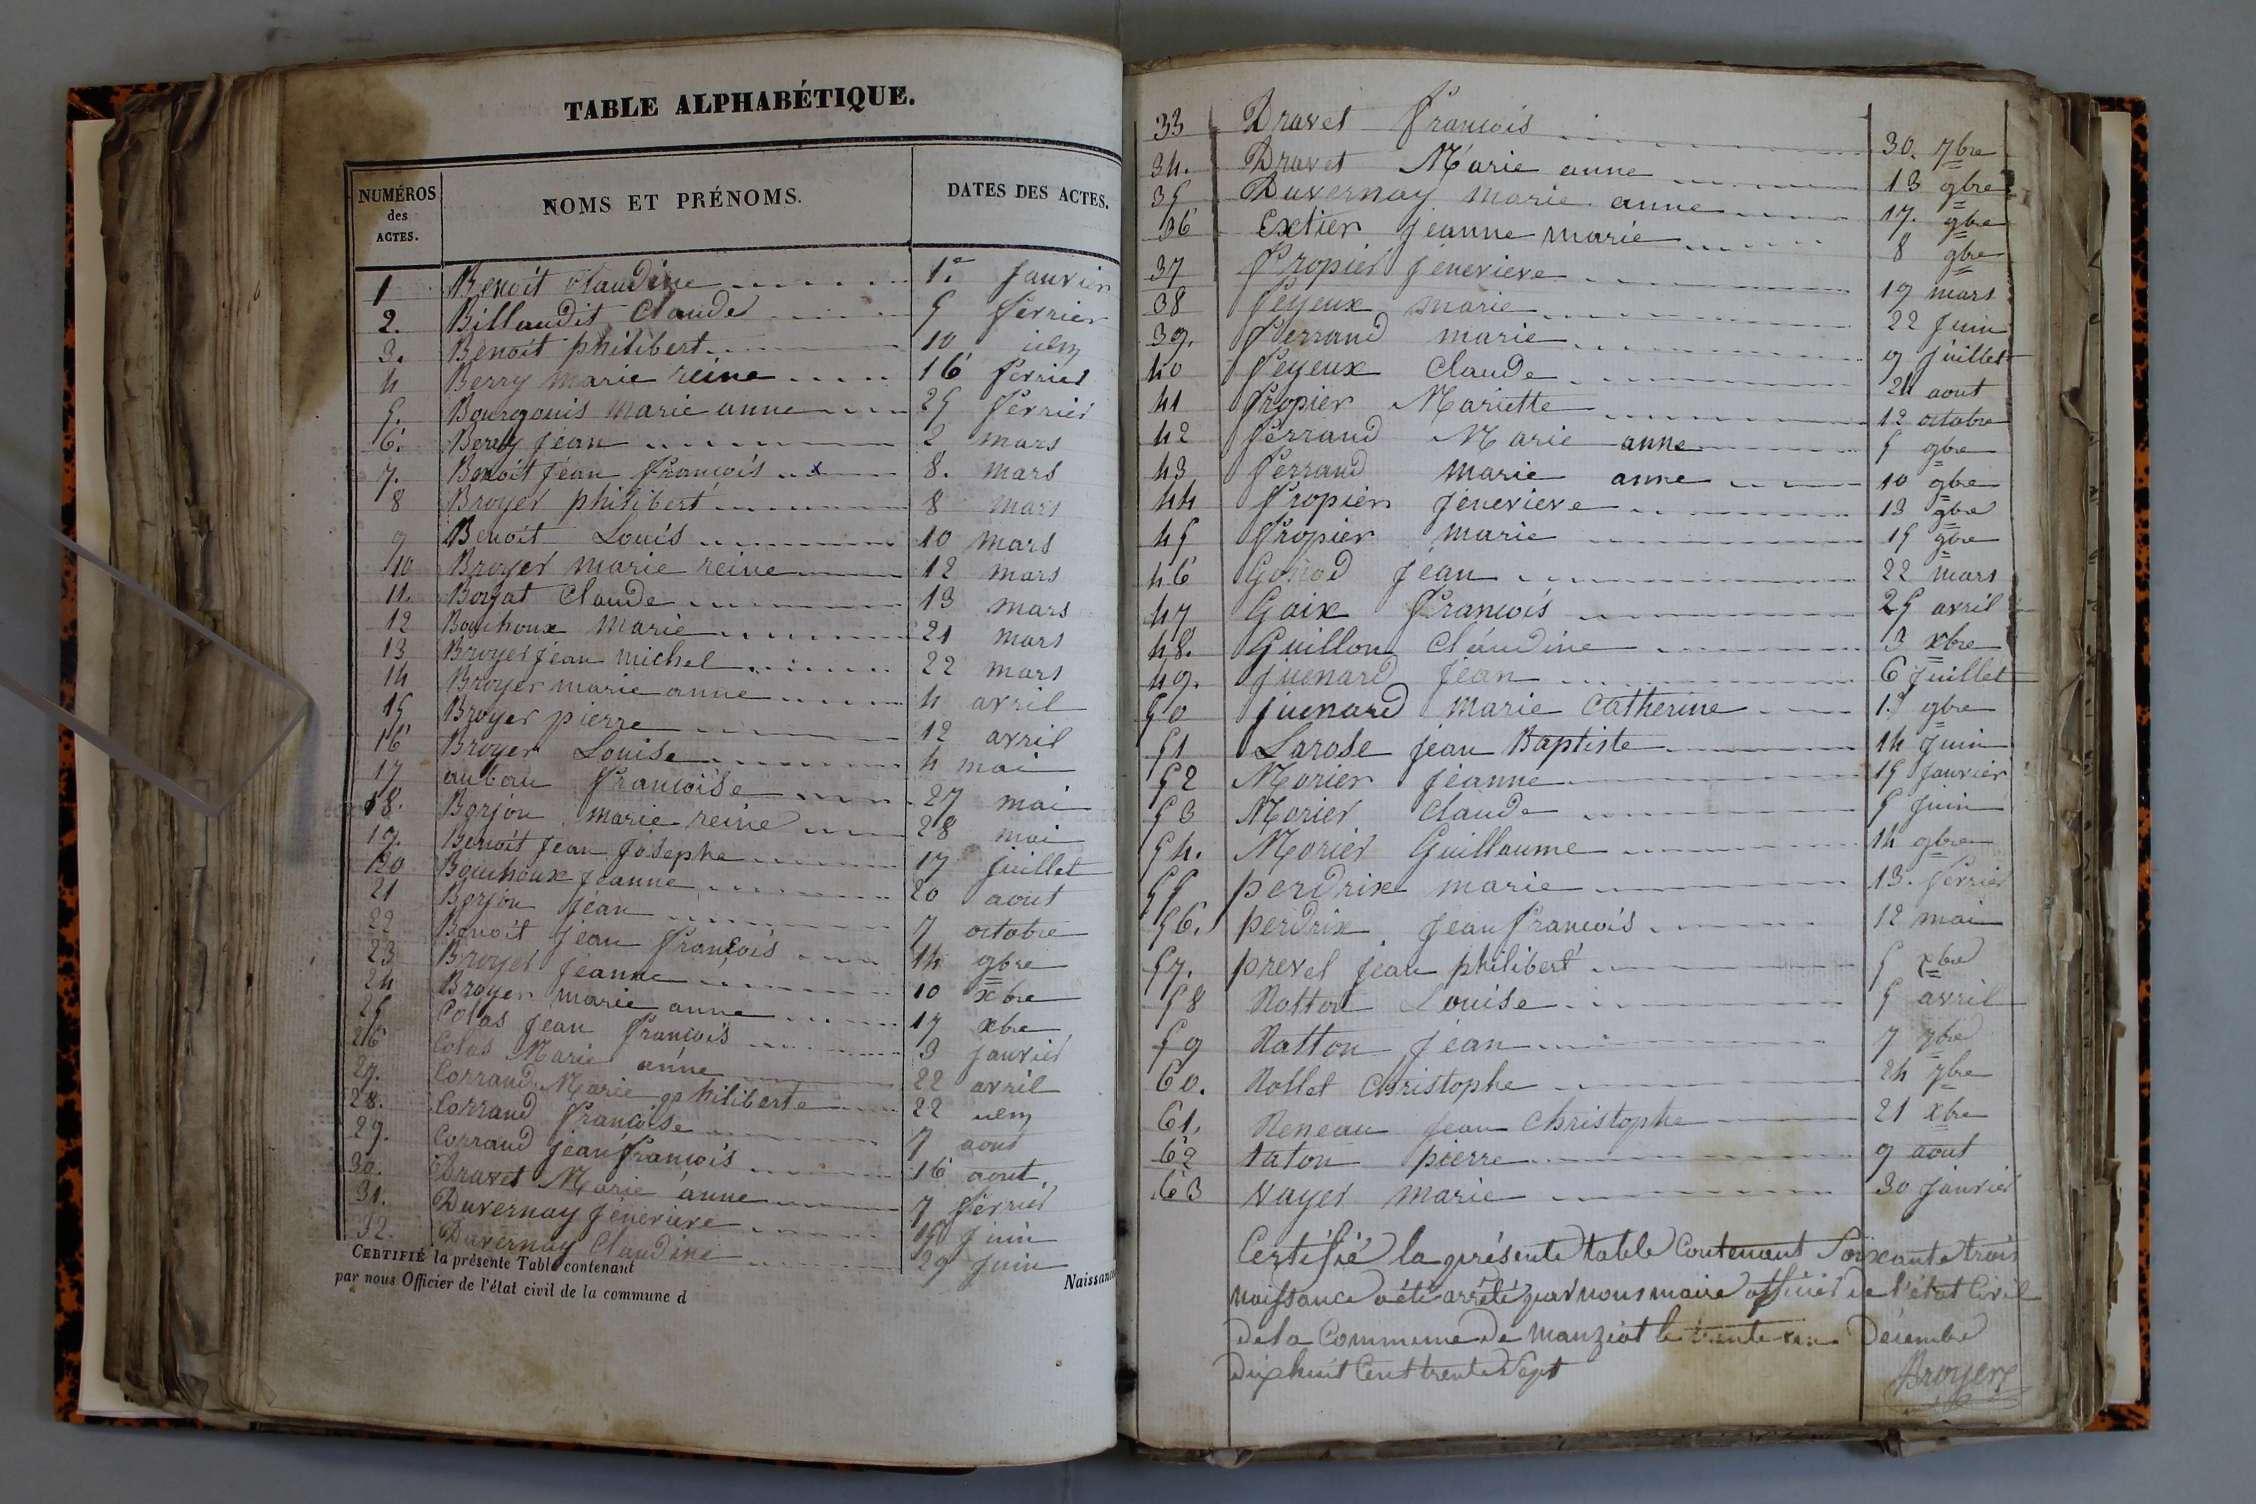 TABLE ALPHABÉTIQUE.
NUMÉROS des ACTES. NOMS ET PRÉNOMS. DATES DES ACTES.
1 Benoit Claudine 1.er Janvier
2. Billaudit Claude 5 février
3. Benoit philibert 10 idem
4 Berry marie reine 16 février
5. Bourgouis marie anne 25 février
6. Berry jean 2 mars
7. Benoit jean françois x 8. mars
8 Broyer philibert 8 mars
9 Benoit Louis 10 mars
10 Broyer marie reine 12 mars
11. Borjat Claude 13 mars
12 Bouchoux marie 21 mars
13 Broyer jean michel 22 mars
14 Broyer marie anne 4 avril
15 Broyer pierre 12 avril
16 Broyer Louise 4 mai
17 françoise 27 mai
18. Borjon marie reine 28 mai
19. Benoit jean josephe 17 juillet
20 Bouchoux jeanne 20 aout
21 Borjon jean 7 octobre
22 Benoit jean françois 14 9bre
23 Broyer jeanne 10 xbre
24 Broyer marie anne 17 xbre
25 Colas jean françois 3 janvier
26 Colas Marie anne 22 avril
27. Corrand Marie philiberte 22 idem
28. Corrand françoise 7 aout
29. Corrand jean françois 16 aout
30. Dravet Marie anne 7 février
31. Duvernay jenevieve 15 juin
32. Duvernay Claudine 29 juin
CERTIFIÉ la présente Table contenant Naissanc
par nous Officier de l'état civil de la commune d
33 Dravet françois 30. 7bre
34. Dravet Marie anne 13 9bre
35 Duvernay marie anne 17. 9bre
36 Extier jeanne marie 8 9bre
37 fropier jenevieve 19 mars
38 feyeux marie 22 juin
39. ferrand marie 9 juillet
40 feyeux Claude 24 aout
41 fropier Mariette 12 octobre
42 ferrand Marie anne 5 9bre
43 ferrand marie anne 10 9bre
44 fropier jenevieve 13 9bre
45 fropier marie 15 9bre
46 Gonod jean 22 mars
47 Goix françois 25 avril
48. Guillon Claudine 3 xbre
49. juenard jean 6 juillet
50 juenard marie catherine 13 9bre
51 Larose jean Baptiste 14 juin
52 Morier jeanne 15 janvier
53 Morier Claude 5 juin
54. Morier Guillaume 14 9bre
55 perdrix marie 13. février
56. perdrix jean françois 12 mai
57. prevel jean philibert 5 xbre
58 Natton Louise 5 avril
59 Natton jean 7 7bre
60. Nollet christophe 24 7bre
61. Reneau jean christophe 21 xbre
62 taton pierre 9 aout
63 vayer marie 30 janvier
Certifié la présente table Contenant Soixante trois
naissance a été arrêté par nous maire officier de l'état Civil
de la Commune de manziat le trente un Décembre
Dix huit Cent trente Sept
Broyer